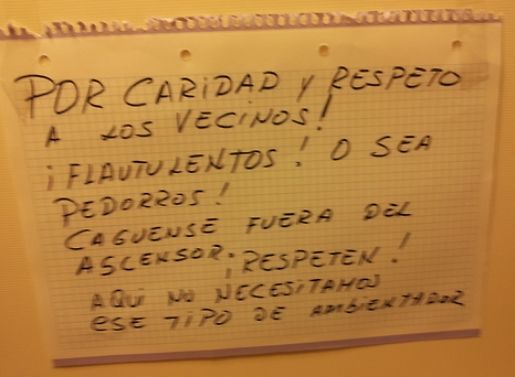 POR CARIDAD Y RESPETO
A LOS VECINOS!
¡FLAUTULENTOS! O SEA
PEDORROS!
CAGUENSE FUERA DEL
ASCENSOR. ¡RESPETEN!
AQUI NO NECESITAMOS
ESE TIPO DE AMBIENTADOR